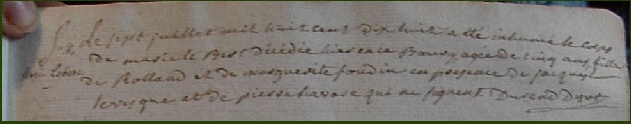 Le sept juillet mil huit cent dix huit a été inhumé le corps
de marie le decedée hier en ce Bourg agée de cinq ans fille
de Rolland et de marguerite foudin en presence de jacques
levesque et de pierre qui ne signent Durand